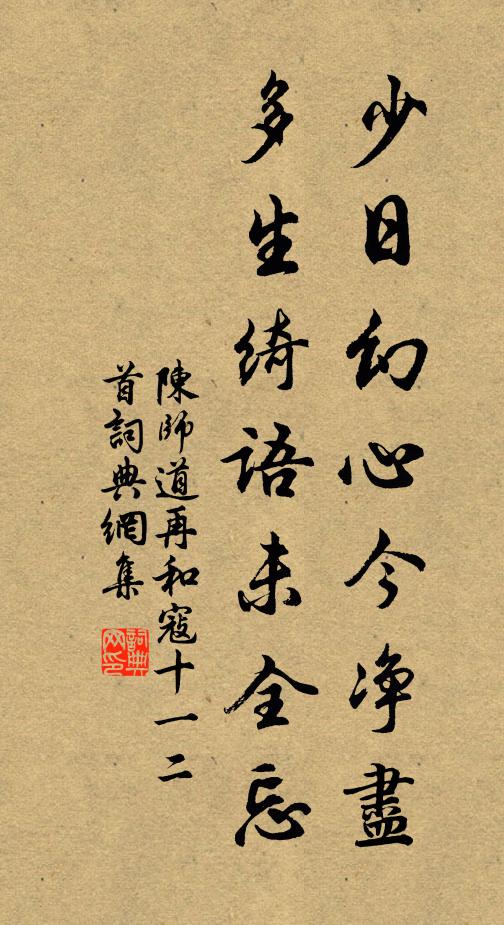 少日幻心今净盡
多生綺語未全忘
陳師道再和寇十一二
首詞典網集
詞典网印